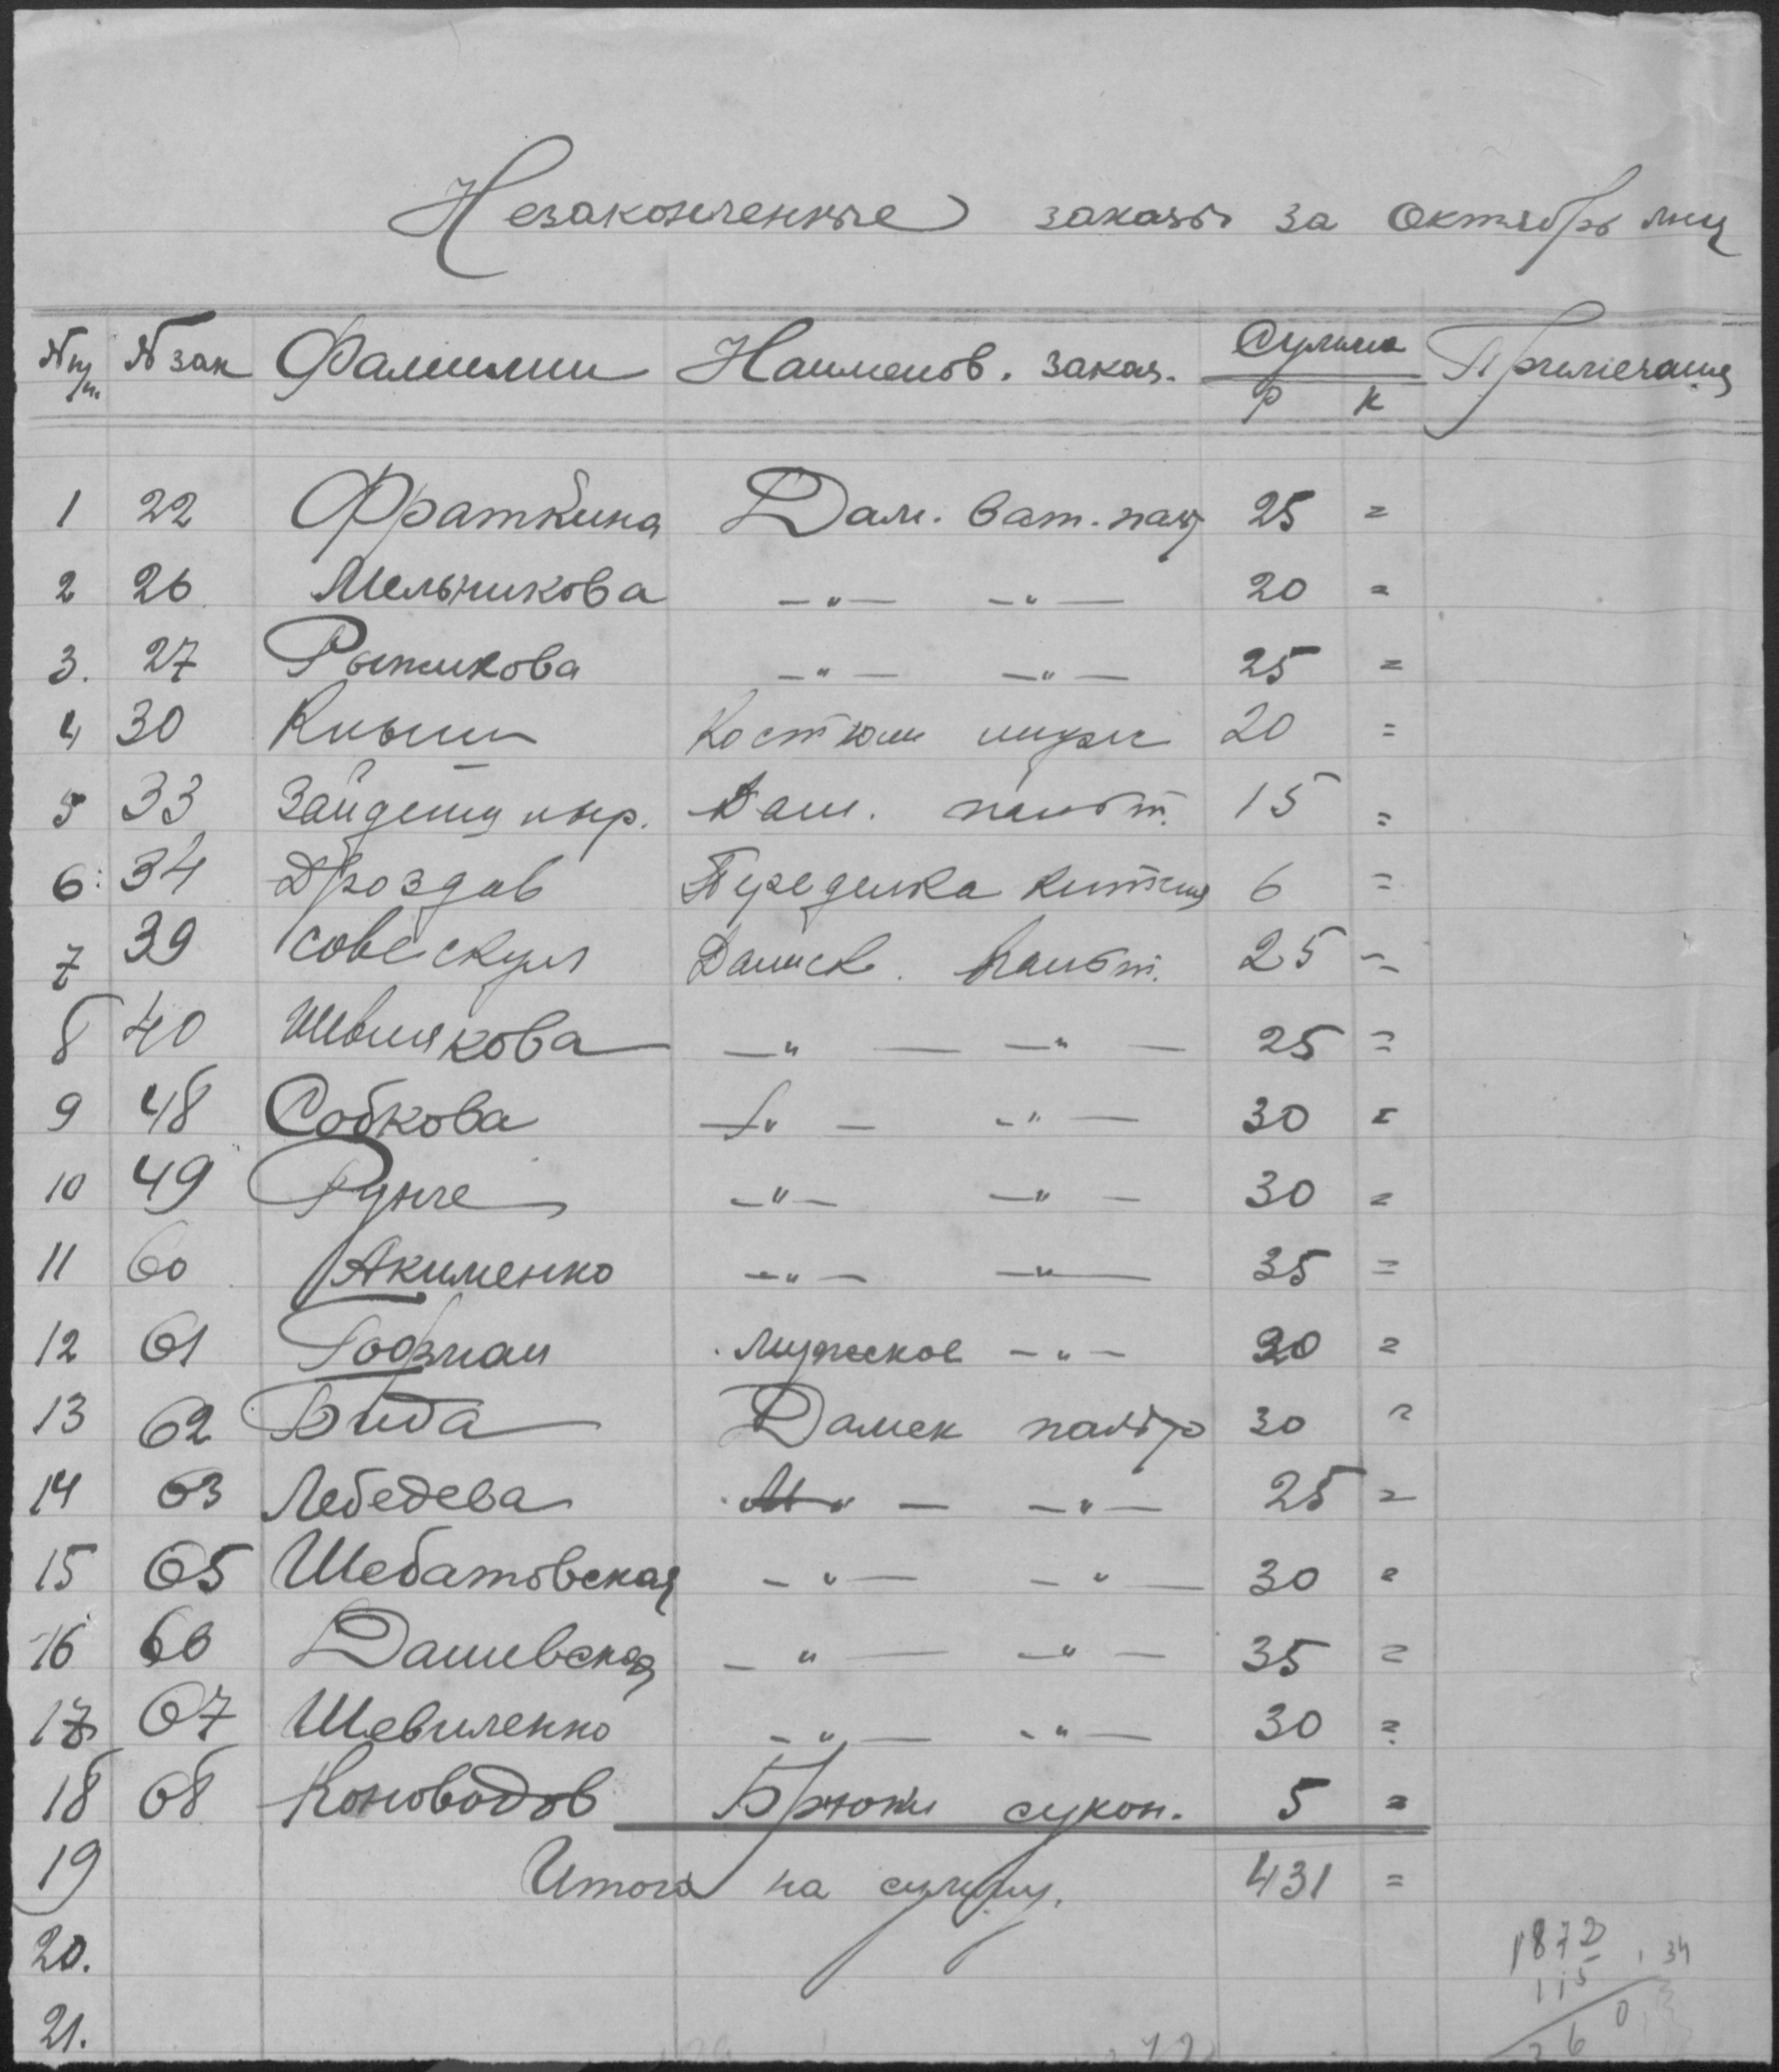 Незаконченные заказы за Октябрь м-ц
№ п/п. № зак Фамилии Наименов. заказ. Сумма Примечания
р к
1 22 Фраткина Дам. ват. пал 25 =
2 26 Мельникова —"— —"— 20 =
3. 27 Рыжикова —"— —"— 25 =
4 30 Кныш Костюм муж 20 =
5 33 Дам. пальт. 15 =
6: 34 Дроздов Переделка 6 =
7 39 Дамск. Пальт. 25 =
8 40 Шевлякова —"— —"— 25 =
9 48 Собкова —"— —"— 30 =
10 49 Рунге —"— —"— 30 =
11 60 Акименко —"— —"— 35 =
12 61 Гофман Мужское —"— 20 =
13 62 Бида Дамск пальто 30 =
14 63 Лебедева —"— —"— 25 =
15 65 Шебатовская —"— —"— 30 =
16 66 Дашевская —"— —"— 35 =
17 67 Шевиленко —"— —"— 30 =
18 68 Коноводов Брюки сукон. 5 =
19 Итого на сумму. 431 =
20.
21.